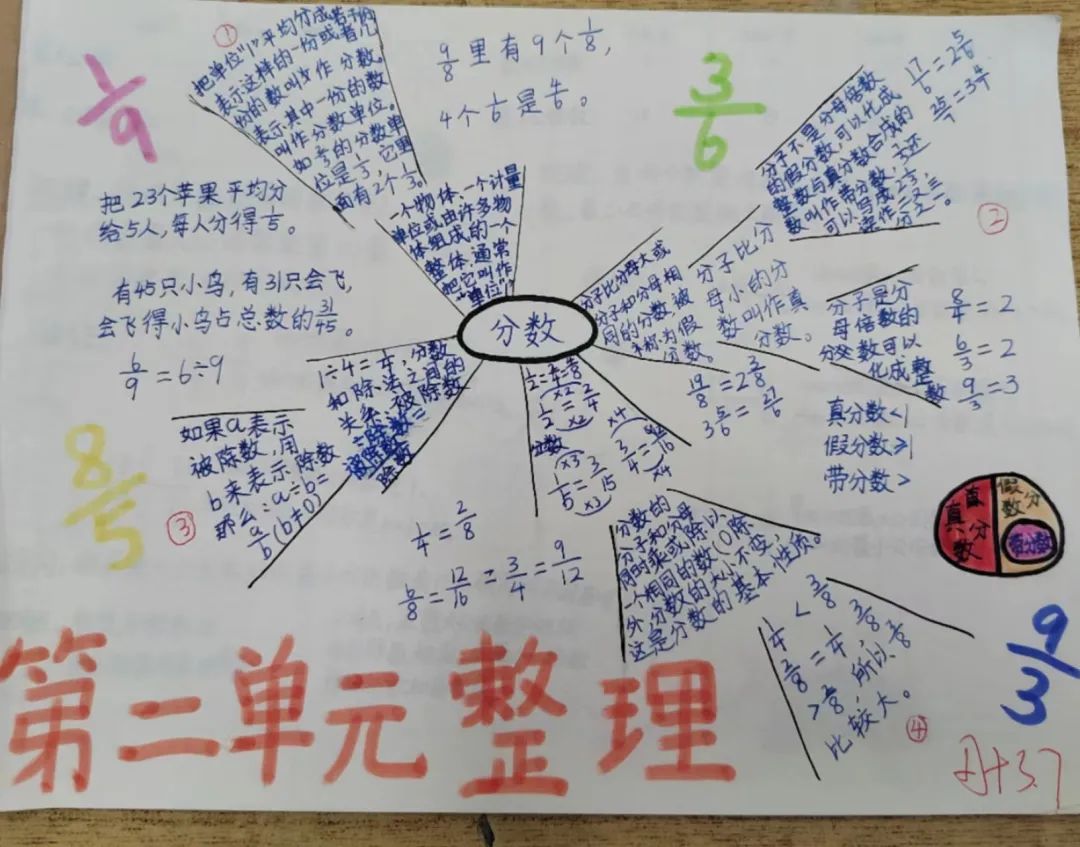 ①
把单位"1"平均分成若干份
表示这样的一份或者几
份的数叫作 分数。
表示其中一份的数
叫作分数单位。
位是1/3,它里
面有2个1/3。
9/8里有9个1/8,
4个1/6是4/6。
1/9
3/6
把23个苹果平均分
给5人,每人分得
有45只小鸟,有31只会飞,
会飞得小鸟占总数的31/45。
6/9=6÷9
一个物体、一个计量
单位或由许多物
体组成的一个
整体,通常
把它叫作
单位"1"
分数
分子不是分母倍数
的假分数,可以化成
整数与真分数合成的
数叫作带分数,
可以写成2 2/3,
读作二又三
分之二。
17/6=2 5/6
②
分子比分母大或
分子和分母相
同的分数,被
称为假
分数。
分子比分
母小的分
数叫作真
分数。
19/8=2 3/8
分子是分
母倍数的
分数可以
化成整
数
8/4=2
6/3=2
9/3=3
真分数<1
假分数≥1
带分数>
真分数
假分数
带分数
1÷4=1/4,分数
和除法之间的
关系:被除数
÷除数=
被除数
除数
如果a表示
被除数,用
b来表示除数
那么:a÷b=
a/b(b≠0)
③
8/5
1/2=2/4
×2
×2
1/5=3/15
×3
×3
×4
×4
1/4=2/8
6/8=12/16=3/4=9/12
分数的
分子和分母
同时乘或除以
一个相同的数(0除
外,分数的大小不变,
这是分数的基本性质。
1/4<3/8
2/8=1/4,3/8
>2/8,所以3/8
比较大。
④
9/3
第二单元整理
3.7